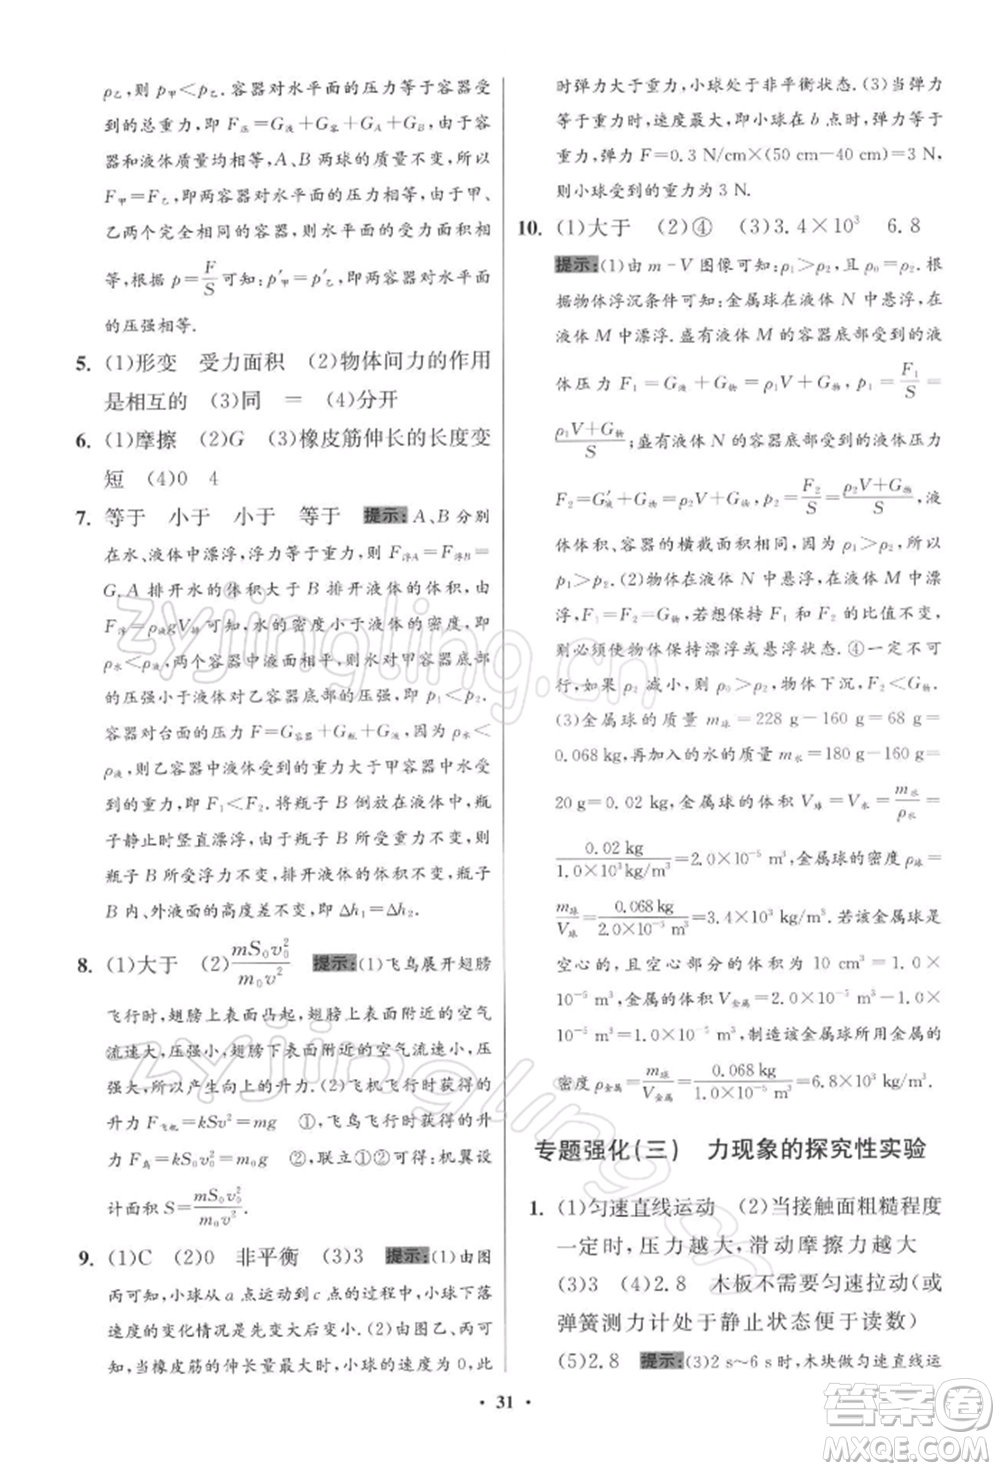 ρ乙，则 p甲＜p乙．容器对水平面的压力等于容器受
到的总重力，即 F压＝G液＋G容＋GA＋GB，由于容
器和液体质量均相等，A、B 两球的质量不变，所以
F甲＝F乙，即两容器对水平面的压力相等，由于甲、
乙两个完全相同的容器，容器与水平面的接触面积相
等，根据 p＝F/S 可知，p′甲＝p′乙，即两容器对水平面
的压强相等．
5. (1)形变　受力面积　(2)物体间力的作用
是相互的　(3)同　＝　(4)分开
6. (1)摩擦　(2)G　(3)橡皮筋伸长的长度变
短　(4)0　4
7. 等于　小于　小于　等于　提示：A、B 分别
在水、液体中漂浮，浮力等于重力，则 F浮A＝F浮B＝
G，A 排开水的体积大于 B 排开液体的体积，由
F浮＝ρ液gV排可知，水的密度小于液体的密度，即
ρ水＜ρ液，两个容器中液面相平，水对甲容器底部
的压强小于液体对乙容器底部的压强，即 p1＜p2，
容器对台面的压力 F＝G容器＋G瓶＋G液，由于 ρ水＜
ρ液，则乙容器中液体受到的重力大于甲容器中水的重
力，所以 F1＜F2．将瓶子 B 倒放在液体中，瓶
子静止时竖直漂浮，由于瓶子 B 所受重力不变，则
瓶子 B 所受浮力不变，瓶子 B 排开液体体积不变，瓶子
B 内、外液面的高度差不变，即 Δh1＝Δh2．
8. (1)大于　(2)mS0v0²/m0v²　提示：(1)飞鸟展开翅膀
飞行时，翅膀上表面凸起，翅膀上表面附近的空气
流速大，压强小，翅膀下表面附近的空气流速小，压
强大，所以产生向上的升力．(2)飞机飞行获得的
升力 F飞机＝kSv²＝mg　①，飞鸟飞行获得的升
力 F鸟＝kS0v0²＝m0g　②，联立①②得：机翼设
计面积 S＝mS0v0²/m0v²．
9. (1)C　(2)0　非平衡　(3)3　提示：(1)由图
丙可知，小球从 a 点运动到 c 点的过程中，小球下落
速度的变化情况是先变大后变小．(2)由图乙、丙可
知，当橡皮筋的伸长量最大时，小球的速度为 0，此
时弹力大于重力，小球处于非平衡状态．(3)当弹力
等于重力时，速度最大，即小球在 b 点时，弹力等于
重力，弹力 F＝0.3 N/cm×(50 cm－40 cm)＝3 N，
则小球受到的重力为 3 N．
10. (1)大于　(2)④　(3)3.4×10³　6.8
提示：(1)由 m－V 图像可知：ρ1＞ρ2，且 ρ0＝ρ2，根
据物体浮沉条件可知：金属球在液体 N 中悬浮，在
液体 M 中漂浮．盛有液体 M 的容器底部受到的液
体压力 F1＝G液＋G物＝ρ1V＋G物，p1＝F1/S＝
ρ1V＋G物/S；盛有液体 N 的容器底部受到的液体压力
F2＝G′液＋G物＝ρ2V＋G物，p2＝F2/S＝ρ2V＋G物/S，液
体体积、容器的横截面积相同，因为 ρ1＞ρ2，所以
p1＞p2．(2)物体在液体 N 中悬浮，在液体 M 中漂
浮，F1＝G物，F2＝G物，若想保持 F1 和 F2 的比值不变，
则必须使物体保持漂浮或悬浮状态．④一定不可
行，如果 ρ2 减小，则 ρ0＞ρ2，物体下沉，F2＜G物．
(3)金属球的质量 m球＝228 g－160 g＝68 g＝
0.068 kg，再加入的水的质量 m水＝180 g－160 g＝
20 g＝0.02 kg，金属球的体积 V球＝V水＝m水/ρ水＝
0.02 kg/1.0×10³ kg/m³＝2.0×10⁻⁵ m³，金属球的密度 ρ球＝
m球/V球＝0.068 kg/2.0×10⁻⁵ m³＝3.4×10³ kg/m³．若该金属球是
空心的，且空心部分的体积为 10 cm³＝1.0×
10⁻⁵ m³，金属的体积 V金属＝2.0×10⁻⁵ m³－1.0×
10⁻⁵ m³＝1.0×10⁻⁵ m³，制造该金属球所用金属的
密度 ρ金属＝m球/V金属＝0.068 kg/1.0×10⁻⁵ m³＝6.8×10³ kg/m³．
专题强化(三)　力现象的探究性实验
1. (1)匀速直线运动　(2)当接触面粗糙程度
一定时，压力越大，滑动摩擦力越大
(3)3　(4)2.8　木板不需要匀速拉动(或
弹簧测力计处于静止状态便于读数)
(5)2.8　提示：(3)2 s～6 s 时，木块做匀速直线运
· 31 ·
zyjingling.cn
zyjingling.cn
答案圈
MXQE.COM